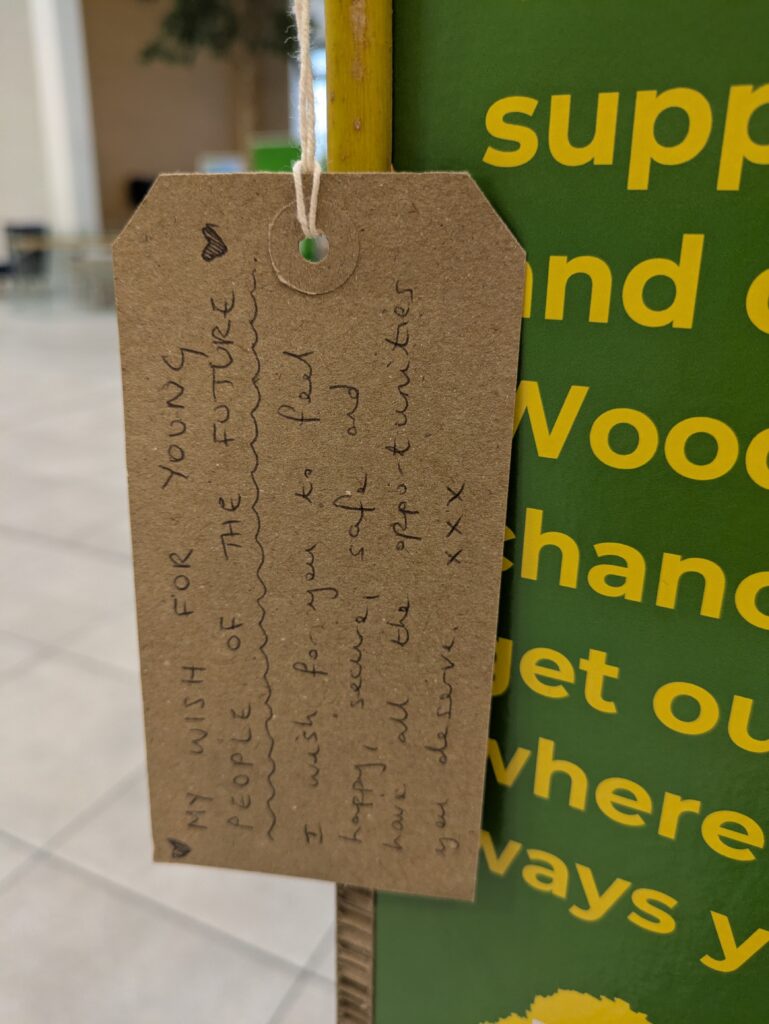 MY WISH FOR YOUNG
PEOPLE OF THE FUTURE
I wish for you to feel
happy, secure, safe and
have all the opportunities
you deserve. xxx
supp
and
Wood
chanc
get ou
where
ways y